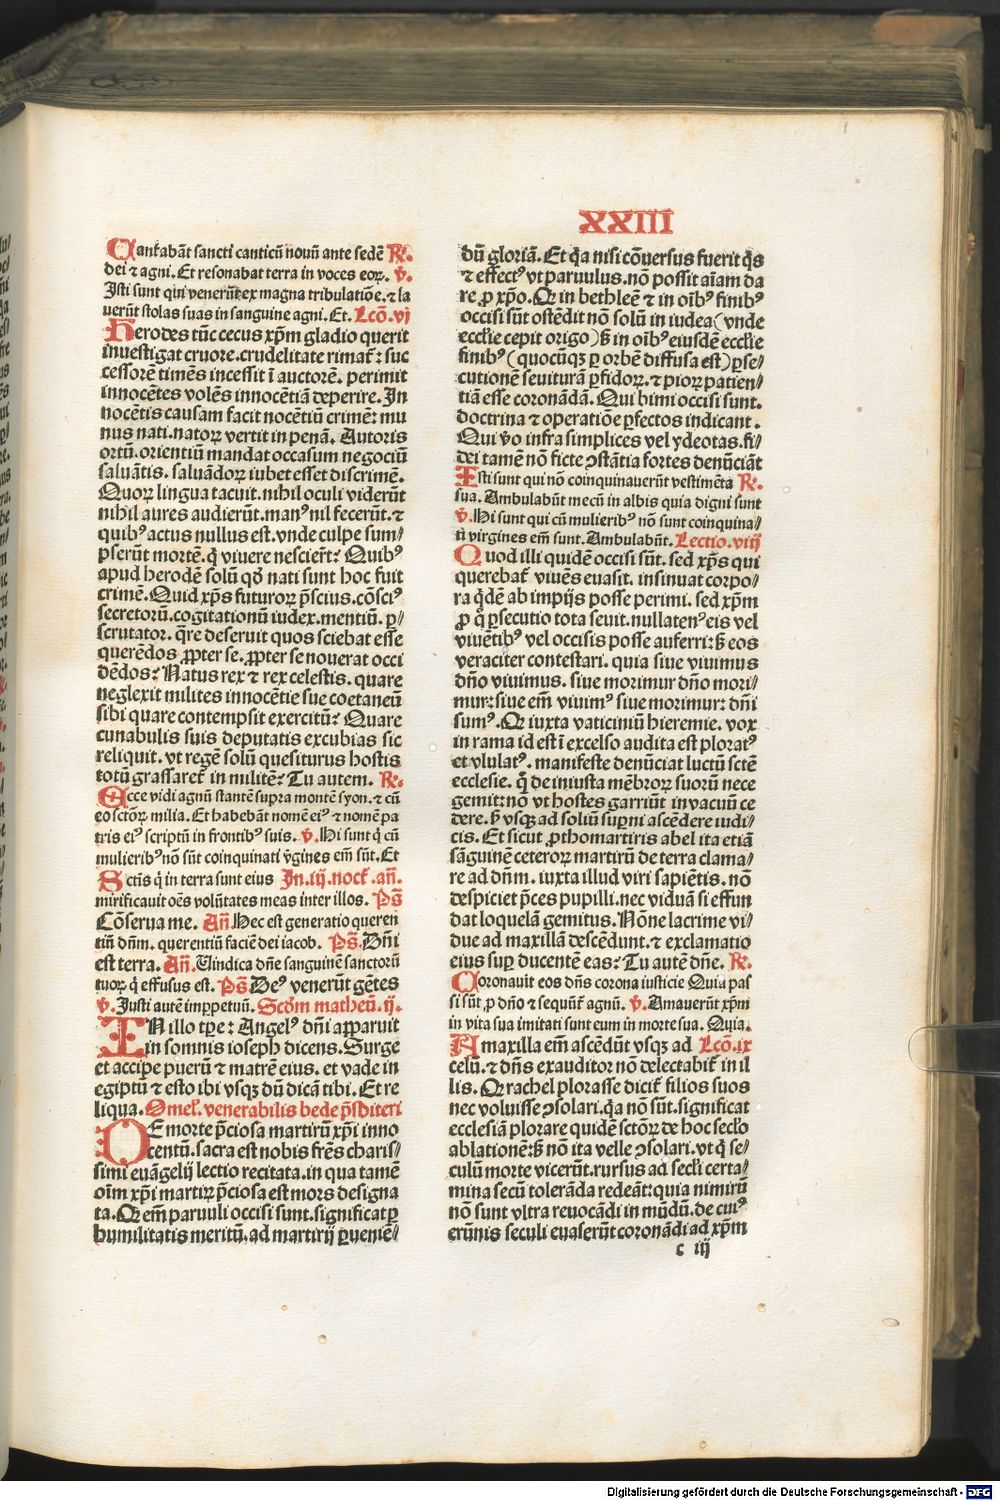 XXIII
Cantabãt sancti canticũ nouũ ante sedẽ ℟.
dei ⁊ agni. Et resonabat terra in voces eoꝝ. ℣.
Isti sunt qui venerũt ex magna tribulatiõe. ⁊ la
uerũt stolas suas in sanguine agni. Et. Lcõ. vj
Herodes tũc cecus xp̃m gladio querit
inuestigat cruore. crudelitate rimat᷑: suc
cessorẽ timẽs incessit ĩ auctorẽ. perimit
innocẽtes volẽs innocẽtiã deperire. In
nocẽtis causam facit nocẽtiũ crimẽ: mu
nus nati. natoꝝ vertit in penã. Autoris
ortũ. orientiũ mandat occasum negociũ
saluãtis. saluãdoꝝ iubet esset discrimẽ.
Quoꝝ lingua tacuit. nihil oculi viderũt
nihil aures audierũt. manꝰ nil fecerũt. ⁊
quibꝰ actus nullus est. vnde culpe sum⸗
pserũt mortẽ. q̇ viuere nesciert̃: Quibꝰ
apud herodẽ solũ qđ nati sunt hoc fuit
crimẽ. Quid xp̃s futuroꝝ p̃scius. cõsciꝰ
secretorũ. cogitationũ iudex. mentiũ. ꝑ⸗
scrutator. q̃re deseruit quos sciebat esse
querẽdos ꝓpter se. ꝓpter se nouerat occi
dẽdos: Natus rex ⁊ rex celestis. quare
neglexit milites innocẽtie sue coetaneũ
sibi quare contempsit exercitũ: Quare
cunabulis suis deputatis excubias sic
reliquit. vt regẽ solũ quesiturus hostis
totũ grassaret᷑ in militẽ: Tu autem. ℟.
Ecce vidi agnũ stantẽ supra montẽ syon. ⁊ cũ
eo sctõꝝ milia. Et habebãt nomẽ eiꝰ ⁊ nomẽ pa
tris eiꝰ scriptũ in frontibꝰ suis. ℣. Hi sunt q̇ cũ
mulieribꝰ nõ sũt coinquinati v̓gines em̃ sũt. Et
Sctĩs q̇ in terra sunt eius In. iij. noct᷑. añ.
mirificauit oẽs volũtates meas inter illos. Ps̃
Cõserua me. Añ. Hec est generatio queren
tiũ dñm. querentiũ faciẽ dei iacob. Ps̃. Dñi
est terra. Añ. Vindica dñe sanguinẽ sanctorũ
tuoꝝ q̇ effusus est. Ps̃ Deꝰ venerũt gẽtes
℣. Justi autẽ imꝑpetuũ. Scðm matheũ. ij.
IN illo tp̃e: Angelꝰ dñi apparuit
in somnis ioseph dicens. Surge
et accipe puerũ ⁊ matrẽ eius. et vade in
egiptũ ⁊ esto ibi vsqꝫ dũ dicã tibi. Et re
liqua. Omel᷑. venerabilis bede p̃sbiteri
DE morte p̃ciosa martirũ xp̃i inno
centũ. sacra est nobis frẽs charis⸗
simi euãgelij lectio recitata. in qua tamẽ
oĩm xp̃i martiꝝ p̃ciosa est mors designa
ta. Qꝛ em̃ paruuli occisi sunt. significat ꝑ
humilitatis meritũ. ad martirij ꝑueniẽ⸗
dũ gloriã. Et q̃a nisi cõuersus fuerit q̇s
⁊ effectꝰ vt paruulus. nõ possit aĩam da
re ꝓ xp̃o. Qꝛ in bethleẽ ⁊ in oĩbꝰ finibꝰ
occisi sũt ostẽdit nõ solũ in iudea (vnde
eccl̃ie cepit origo) ꝫ in oĩbꝰ eiusdẽ eccl̃ie
finibꝰ (quocũqꝫ ꝑ orbẽ diffusa est) ꝑse⸗
cutionẽ seuiturã ꝑfidoꝝ. ⁊ pioꝝ patien⸗
tiã esse coronãdã. Qui bimi occisi sunt.
doctrina ⁊ operatiõe ꝑfectos indicant.
Qui v̓o infra simplices vel ydeotas. fi⸗
dei tamẽ nõ ficte ꝯstãtia fortes denũciãt
Isti sunt qui nõ coinquinauerũt vestimẽta ℟.
sua. Ambulabũt mecũ in albis quia digni sunt
℣. Hi sunt qui cũ mulieribꝰ nõ sunt coinquina⸗
ti virgines em̃ sunt. Ambulabũt. Lectio. viij
Quod illi quidẽ occisi sũt. sed xp̃s qui
querebat᷑ viuẽs euasit. insinuat corpo⸗
ra q̇dẽ ab impijs posse perimi. sed xp̃m
ꝓ q̇ ꝑsecutio tota seuit. nullatenꝰ eis vel
viuẽtibꝰ vel occisis posse auferri: ꝫ eos
veraciter contestari. quia siue viuimus
dño viuimus. siue morimur dño mori⸗
mur: siue em̃ viuimꝰ siue morimur: dñi
sumꝰ. Qꝛ iuxta vaticiniũ hieremie. vox
in rama id est ĩ excelso audita est ploratꝰ
et vlulatꝰ. manifeste denũciat luctũ sctẽ
ecclesie. q̃ de iniusta mẽbroꝝ suorũ nece
gemit: nõ vt hostes garriũt in vacuũ ce
dere. ꝫ vsqꝫ ad soliũ suꝑni ascẽdere iudi⸗
cis. Et sicut ꝓthomartiris abel ita etiã
sãguinẽ ceteroꝝ martirũ de terra clama⸗
re ad dñm. iuxta illud viri sapiẽtis. nõ
despiciet p̃ces pupilli. nec viduã si effun
dat loquelã gemitus. Nõne lacrime vi⸗
due ad maxillã descẽdunt. ⁊ exclamatio
eius suꝑ ducentẽ eas: Tu autẽ dñe. ℟.
Coronauit eos dñs corona iusticie Quia pas
si sũt ꝓ dño ⁊ sequũt᷑ agnũ. ℣. Amauerũt xp̃m
in vita sua imitati sunt eum in morte sua. Quia.
A maxilla em̃ ascẽdũt vsqꝫ ad Lcõ. ix
celũ. ⁊ dñs exauditor nõ delectabit᷑ in il
lis. Qꝛ rachel plorasse dicit᷑ filios suos
nec voluisse ꝯsolari. q̃a nõ sũt. significat
ecclesiã plorare quidẽ sctõꝝ de hoc secl̃o
ablationẽ: ꝫ nõ ita velle ꝯsolari. vt q̇ se⸗
culũ morte vicerũt. rursus ad secl̃i certa⸗
mina secũ tolerãda redeãt: quia nimirũ
nõ sunt vltra reuocãdi in mũdũ. de cuiꝰ
erũnis seculi euaserũt coronãdi ad xp̃m
c iij
Digitalisierung gefördert durch die Deutsche Forschungsgemeinschaft - DFG